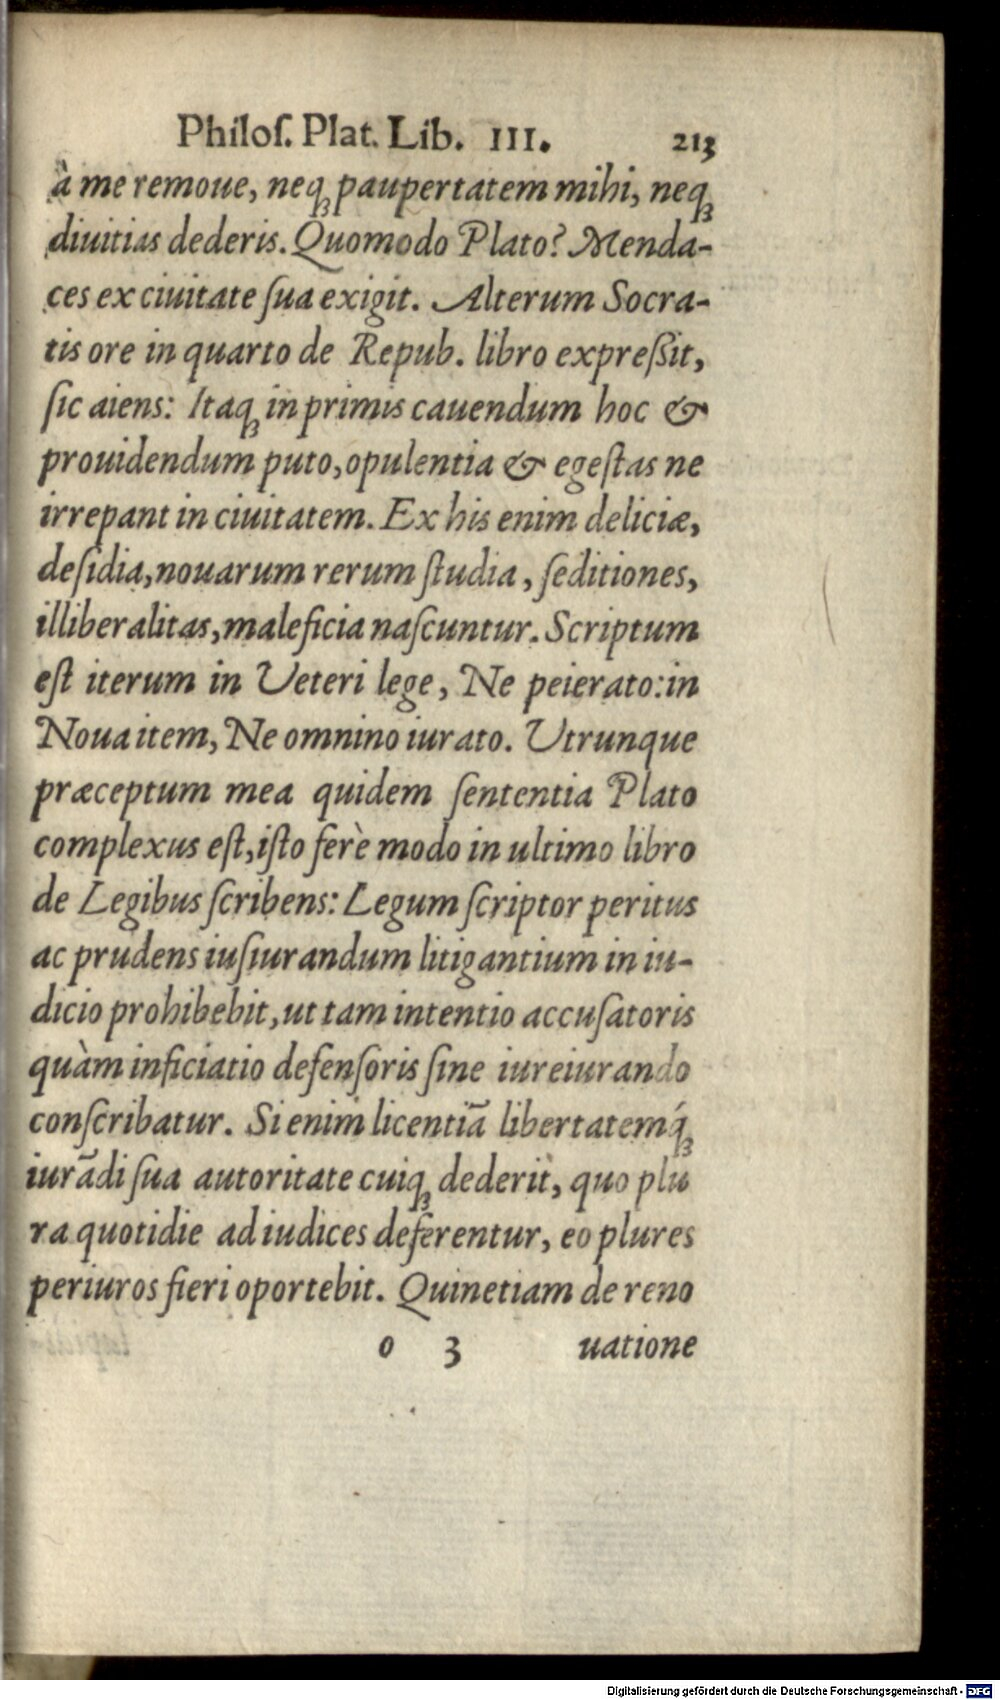 Philoſ. Plat. Lib. III. 213
à me remoue, neq́ꝫ paupertatem mihi, neqꝫ
diuitias dederis. Quomodo Plato? Menda-
ces ex ciuitate ſua exigit. Alterum Socra-
tis ore in quarto de Repub. libro expreßit,
ſic aiens: Itaqꝫ in primis cauendum hoc &
prouidendum puto, opulentia & egeſtas ne
irrepant in ciuitatem. Ex his enim deliciæ,
deſidia, nouarum rerum ſtudia, ſeditiones,
illiberalitas, maleficia naſcuntur. Scriptum
eſt iterum in Veteri lege, Ne peierato: in
Noua item, Ne omnino iurato. Vtrunque
præceptum mea quidem ſententia Plato
complexus eſt, iſto ferè modo in ultimo libro
de Legibus ſcribens: Legum ſcriptor peritus
ac prudens iuſiurandum litigantium in iu-
dicio prohibebit, ut tam intentio accuſatoris
quàm inficiatio defenſoris ſine iureiurando
conſcribatur. Si enim licentiã libertatemq́ꝫ
iurãdi ſua autoritate cuiqꝫ dederit, quo plu
ra quotidie ad iudices deferentur, eo plures
periuros fieri oportebit. Quinetiam de reno
o 3 uatione
Digitalisierung gefördert durch die Deutsche Forschungsgemeinschaft - DFG